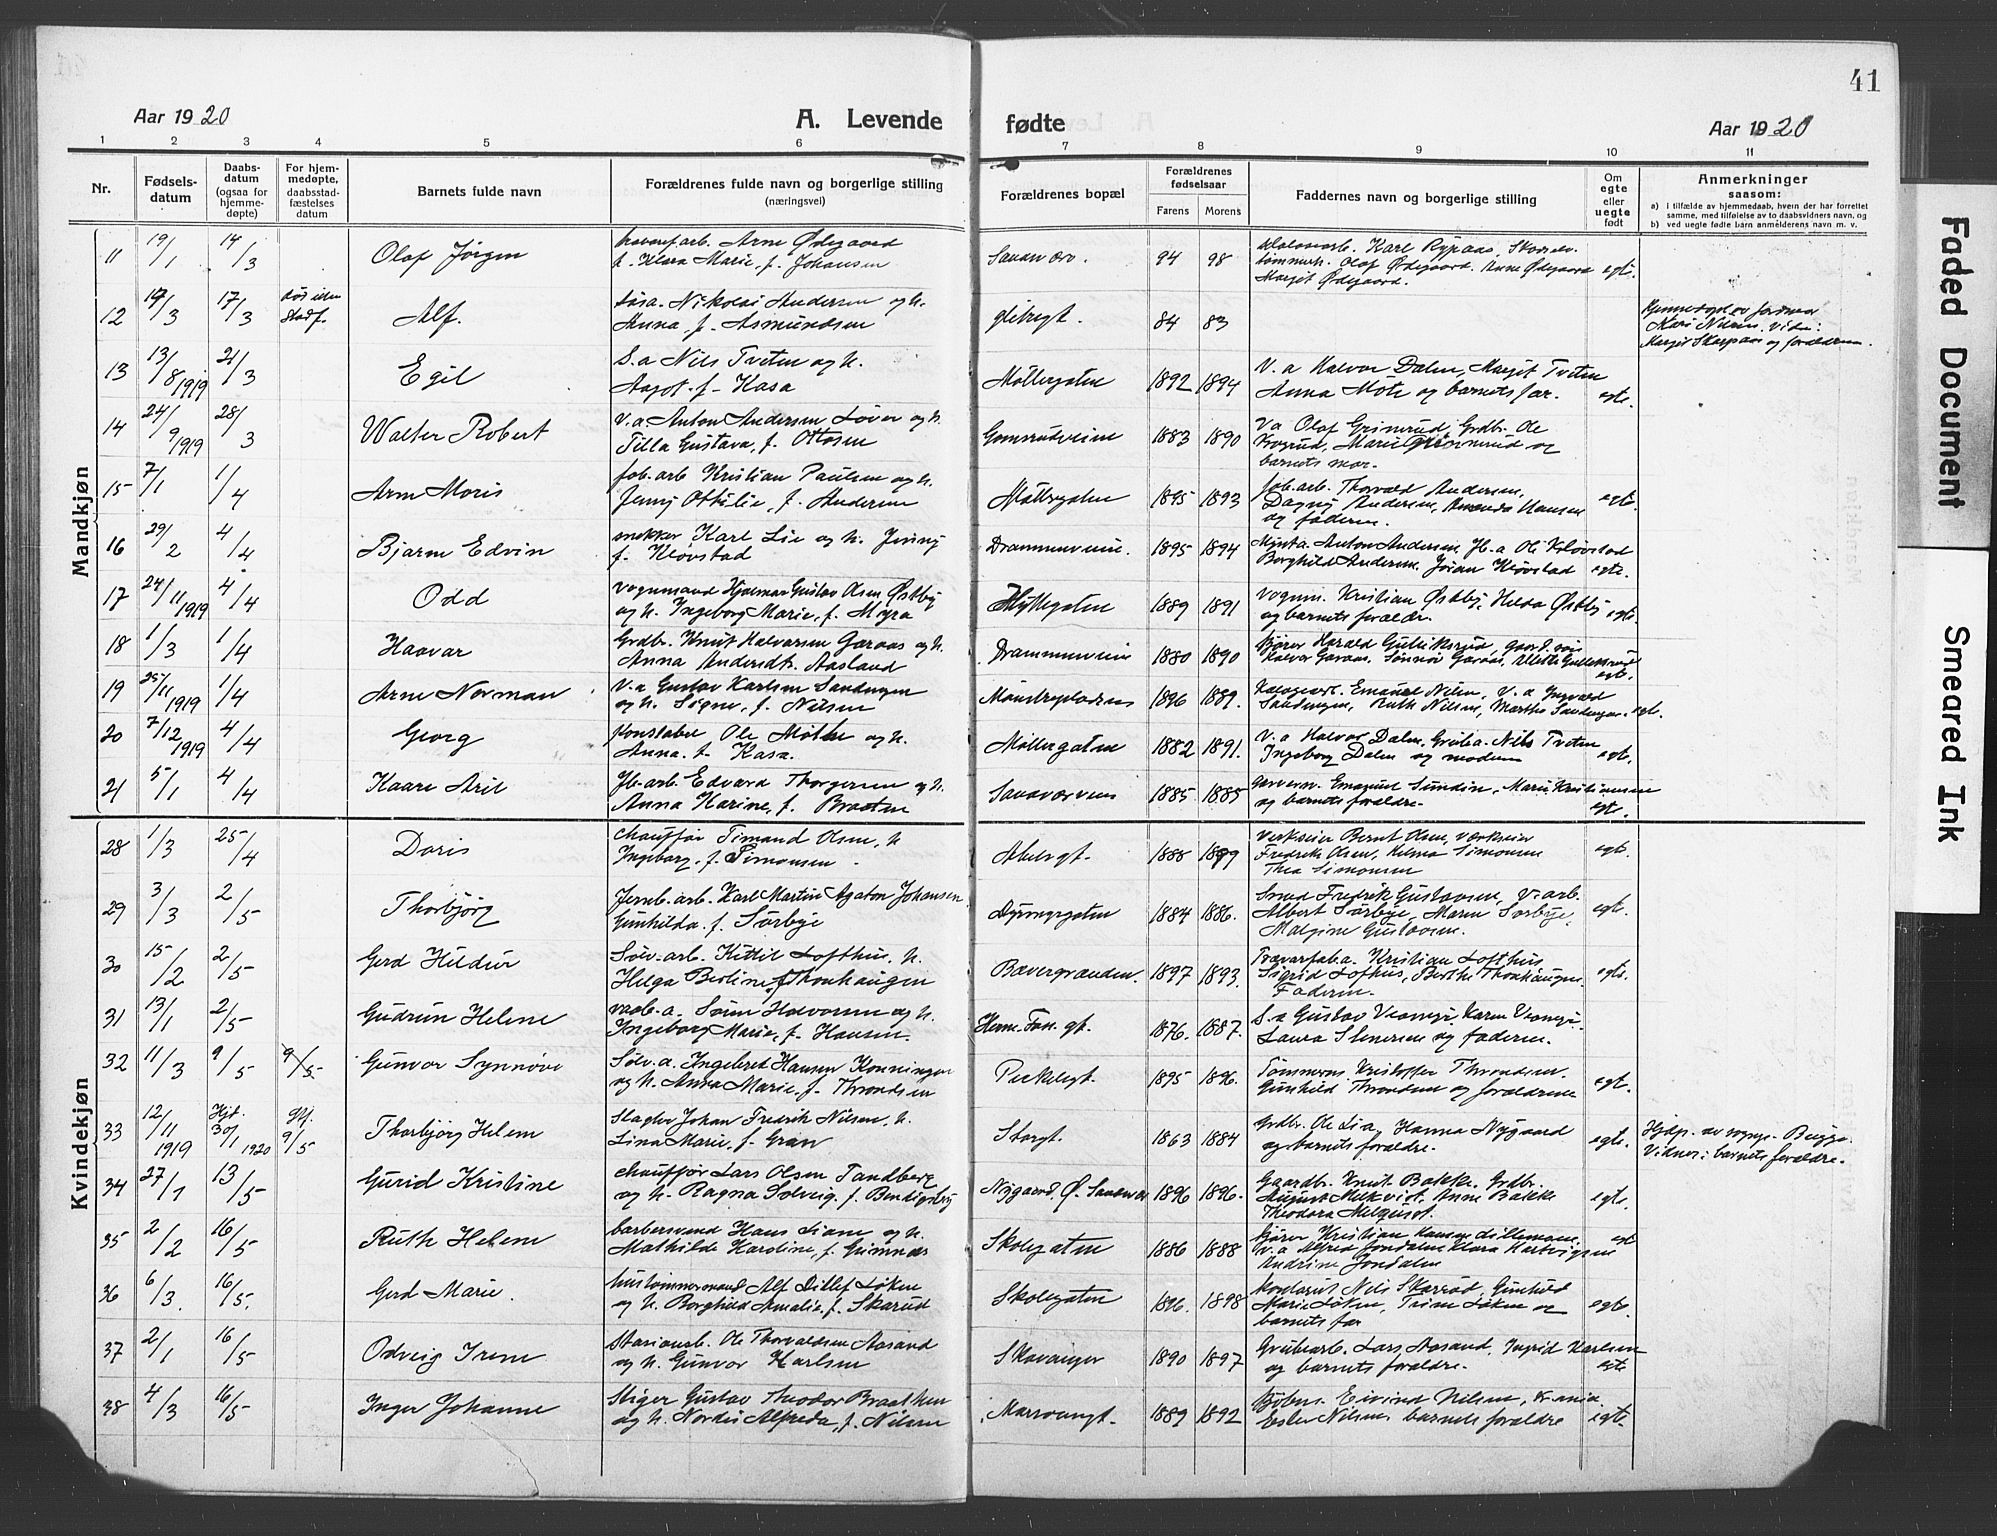 41
Aar 1920
A. Levende fødte
Aar 1920
1 2 3 4 5 6 7 8 9 10 11
Nr.
Fødselsdatum
Daabsdatum (ogsaa for hjemmedøpte)
For hjemmedøpte, daabsstadfæstelses datum
Barnets fulde navn
Forældrenes fulde navn og borgerlige stilling (næringsvei)
Forældrenes bopæl
Forældrenes fødselsaar
Farens Morens
Faddernes navn og borgerlige stilling
Om egte eller uegte født
Anmerkninger saasom:
a) i tilfælde av hjemmedaab, hvem der har forrettet samme, med tilføielse av to daabsvidners navn, og
b) ved uegte fødte barn anmelderens navn m. v.
Mandkjøn
11 19/1 14/3 Olaf Jørgen
Arne Ødegaard
Klara Marie, f. Johansen
94 98
Karl Rypaas
Olaf Ødegaard. Anne Ødegaard egte.
Margit Ødegaard.
12 17/3 17/3 Alf.
Nikolai Andersen og h.
Anna, f. Asmundsen
84 83
Kari Nilsen
Margit Skarpaas og forældrene.
13 13/8 1919 21/3 Egil
S.a Nils Tveten og h.
Aagot. f. Kasa
Møllergaten 1892 1894
V. a Halvor Dalen, Margit Tveten
Anna Mote og barnets far. egte.
14 24/9 1919 28/3 Walter Robert
V. a Anton Andersen Løver og h.
Tilla Gustava, f. Ottosen
Gomsrudveine 1883 1890
V a Olaf Grimsrud, Grdbr. Ole
Marie og
barnets mor.
15 7/1 1/4 Arne Moris
fob. arb Kristian Paulsen og h.
Jenny Ottilie f. Andersen
Møllergaten 1895 1893
fob. arb. Thorvald Andersen,
Dagny Andersen, Amanda Hansen egte.
og faderen.
16 29/2 4/4 Bjarne Edvin
snekker Karl Lie og h. Jenny
f. Kløvstad
Drammensveine. 1895 1894
Anton Andersen, Jb. a Ole Kløvstad
Borghild Andersen. Jøran Kløvstad egte.
17 24/11 1919 4/4 Odd
vognmand Hjalmar Gustav Olsen Østby
og h. Ingeborg Marie, f. Myra
Hyttegaten 1889 1891
Vognm. Kristian Østby, Hilda Østby egte.
og barnets forældr.
18 1/3 1/4 Haavar
Grdbr. Knut Halvorsen Garaas og h.
Anna Andersdtr. Aasland
Drammensveine 1880 1890
Harald Gulliksrud
Halvor Garaas
egte.
19 25/11 1919 1/4 Arne Norman
V. a Gustav Karlsen Sandengen
og h. Signe, f. Nilsen
1896 1889.
Emanuel Nilsen, V. a Ingvald
Sandengen, Ruth Nilsen, Marthe Sandengen. egte.
20 7/12 1919 4/4 Georg
konstabel Ole og h.
Anna. f. Kasa.
Møllergaten 1882 1891.
V. a Halvor Dalen, Nils Tveten
Ingeborg Dalen og moderen egte.
21 5/1 4/4 Kaare Aril
Jb. arb. Edvard Thorgersen og h.
Anna Karine, f. Braaten
1885 1885
Emanuel Sundin, Marie Kristiansen
og barnets forældre. egte.
Kvindekjøn
28 1/3 25/4 Doris
chauffør Timand Olsen, h
Ingeborg, f. Simonsen
Abelsgt. 1888 1899
Verkseier Bernt Olsen, værkseier
Fredrik Olsen, Helma Simonsen egte.
Thea Simonsen
29 3/3 2/5 Thorbjørg
Jernb. arb. Karl Martin Agaton Johansen
Gunhilda. f. Sørbye
Dyrmyrgaten 1884 1886.
Smed Fredrik Gustavsen, V. arb.
Albert Sørbye, Maren Sørbye, egte.
Malfine Gustavsen.
30 15/2 2/5 Gerd Hildur
Sølv. arb. Kittil Lofthus, h.
Helga Berline f. Thonhaugen
Bævergrænden. 1897 1893.
Kristian Lofthus
Sigrid Lofthus, Berthe Thonhaugen. egte.
Faderen.
31 13/1 2/5 Gudrun Helene
Søren Halvorsen og h.
Ingeborg Marie, f. Hansen.
Herm. Foss. gt. 1876. 1887.
S. a Gustav
Laura Stenersen og faderen.
32 11/3 9/5 9/5. Gunvor Synnøve
Sølv. a. Ingebret Hansen Konningen
og h. Anna Marie, f. Throndsen
1895 1896.
Kristoffer Throndsen.
Gunhild Throndsen og forældrene egte.
33 12/11 1919 Hjd. 30/1 1920 9/5 Thorbjørg Helene
Slagter Johan Fredrik Nilsen, h.
Lina Marie, f. Gran
Storgt. 1863 1884
Grdbr. Ole Lia, Hanna Nygaard
og barnets forældre. egte.
Hjdp. av
Vidner: barnets forældre.
34 27/1 13/5 Gurid Kristine
chauffør Lars Olsen Tandberg
og h. Ragna Solveig, f. Bentigsby
1896 1896.
Gaardb. Knut Bakke. Grdbr.
August Melkvist, Anne Bakke egte.
Theodora Melquist.
35 2/2 16/5 Ruth Helene
barbersvend Hans Liane og h.
Mathilde Karoline, f. Grimnæs
Skolegaten 1886 1888
Kristian Hansen Lillemoen. egt
V. a Alfred Jondalen, Klara Hartvigsen
Andrine Jondalen
36 6/3. 16/5. Gerd Marie.
Alf Ditlef Løken
og h. Borghild Amalie, f. Skarud
Skolegaten 1896. 1898
Nils Skarrud, Gunhild
Marie Løken, Trine Løken og egte.
barnets far
37 2/1 16/5 Odveig Irene
Ole Thorvaldsen Aasand
og h. Gunvor Karlsen
Skavanger 1890 1897
Grubearb. Lars Aasand. Ingrid Karlsen
og barnets forældre. egte
38 4/3 16/5 Inger Johanne
Stiger Gustav Theodor Braathen
og h. Nordis Alfreda, f. Nilsen
1889 1892
Eivind Nilsen, Krania.
Ester Nilsen barnets forældre egte.
Faded Document
Smeared Ink